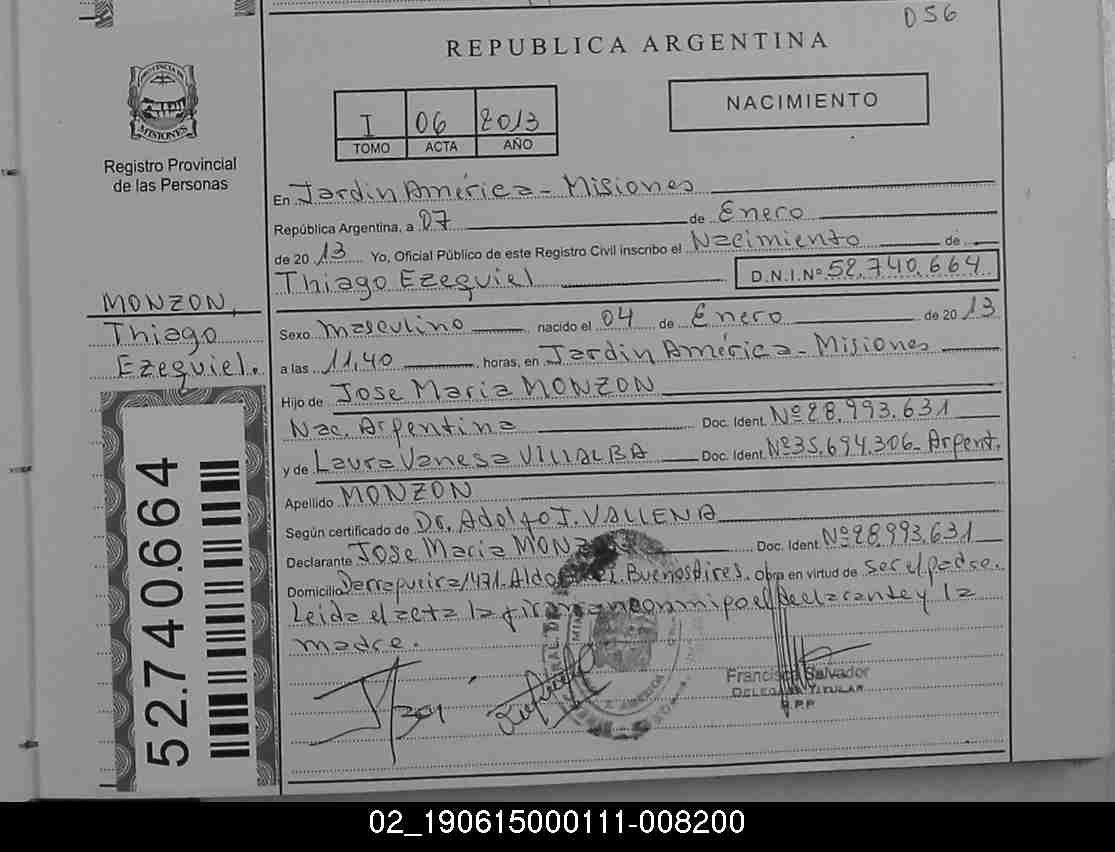 056
REPUBLICA ARGENTINA
PROVINCIA DE
MISIONES
Registro Provincial
de las Personas
I 06 2013
TOMO ACTA AÑO
NACIMIENTO
En Jardin América - Misiones
República Argentina, a 07 de Enero
de 2013 Yo, Oficial Público de este Registro Civil inscribo el Nacimiento de
Thiago Ezequiel D.N.I.Nº 52.740.664
MONZON,
Thiago
Ezequiel.
Sexo masculino nacido el 04 de Enero de 2013
a las 11,40 horas, en Jardin América - Misiones
Hijo de Jose Maria MONZON
Nac. Argentina Doc. Ident. Nº 28.993.631
y de Laura Vanesa VILLALBA Doc. Ident. Nº 35.694.306- Argent.
Apellido MONZON
Según certificado de Dr. Adolfo J. VALLENA
Declarante Jose Maria MONZON Doc. Ident. Nº 28.993.631
Domicilio 1471. Buenos Aires. obra en virtud de ser el padre.
Leida el acta la firman conmigo el declarante y la
madre.
52.740.664
Francisco Salvador
DELEGADA TITULAR
R.P.P
02_190615000111-008200